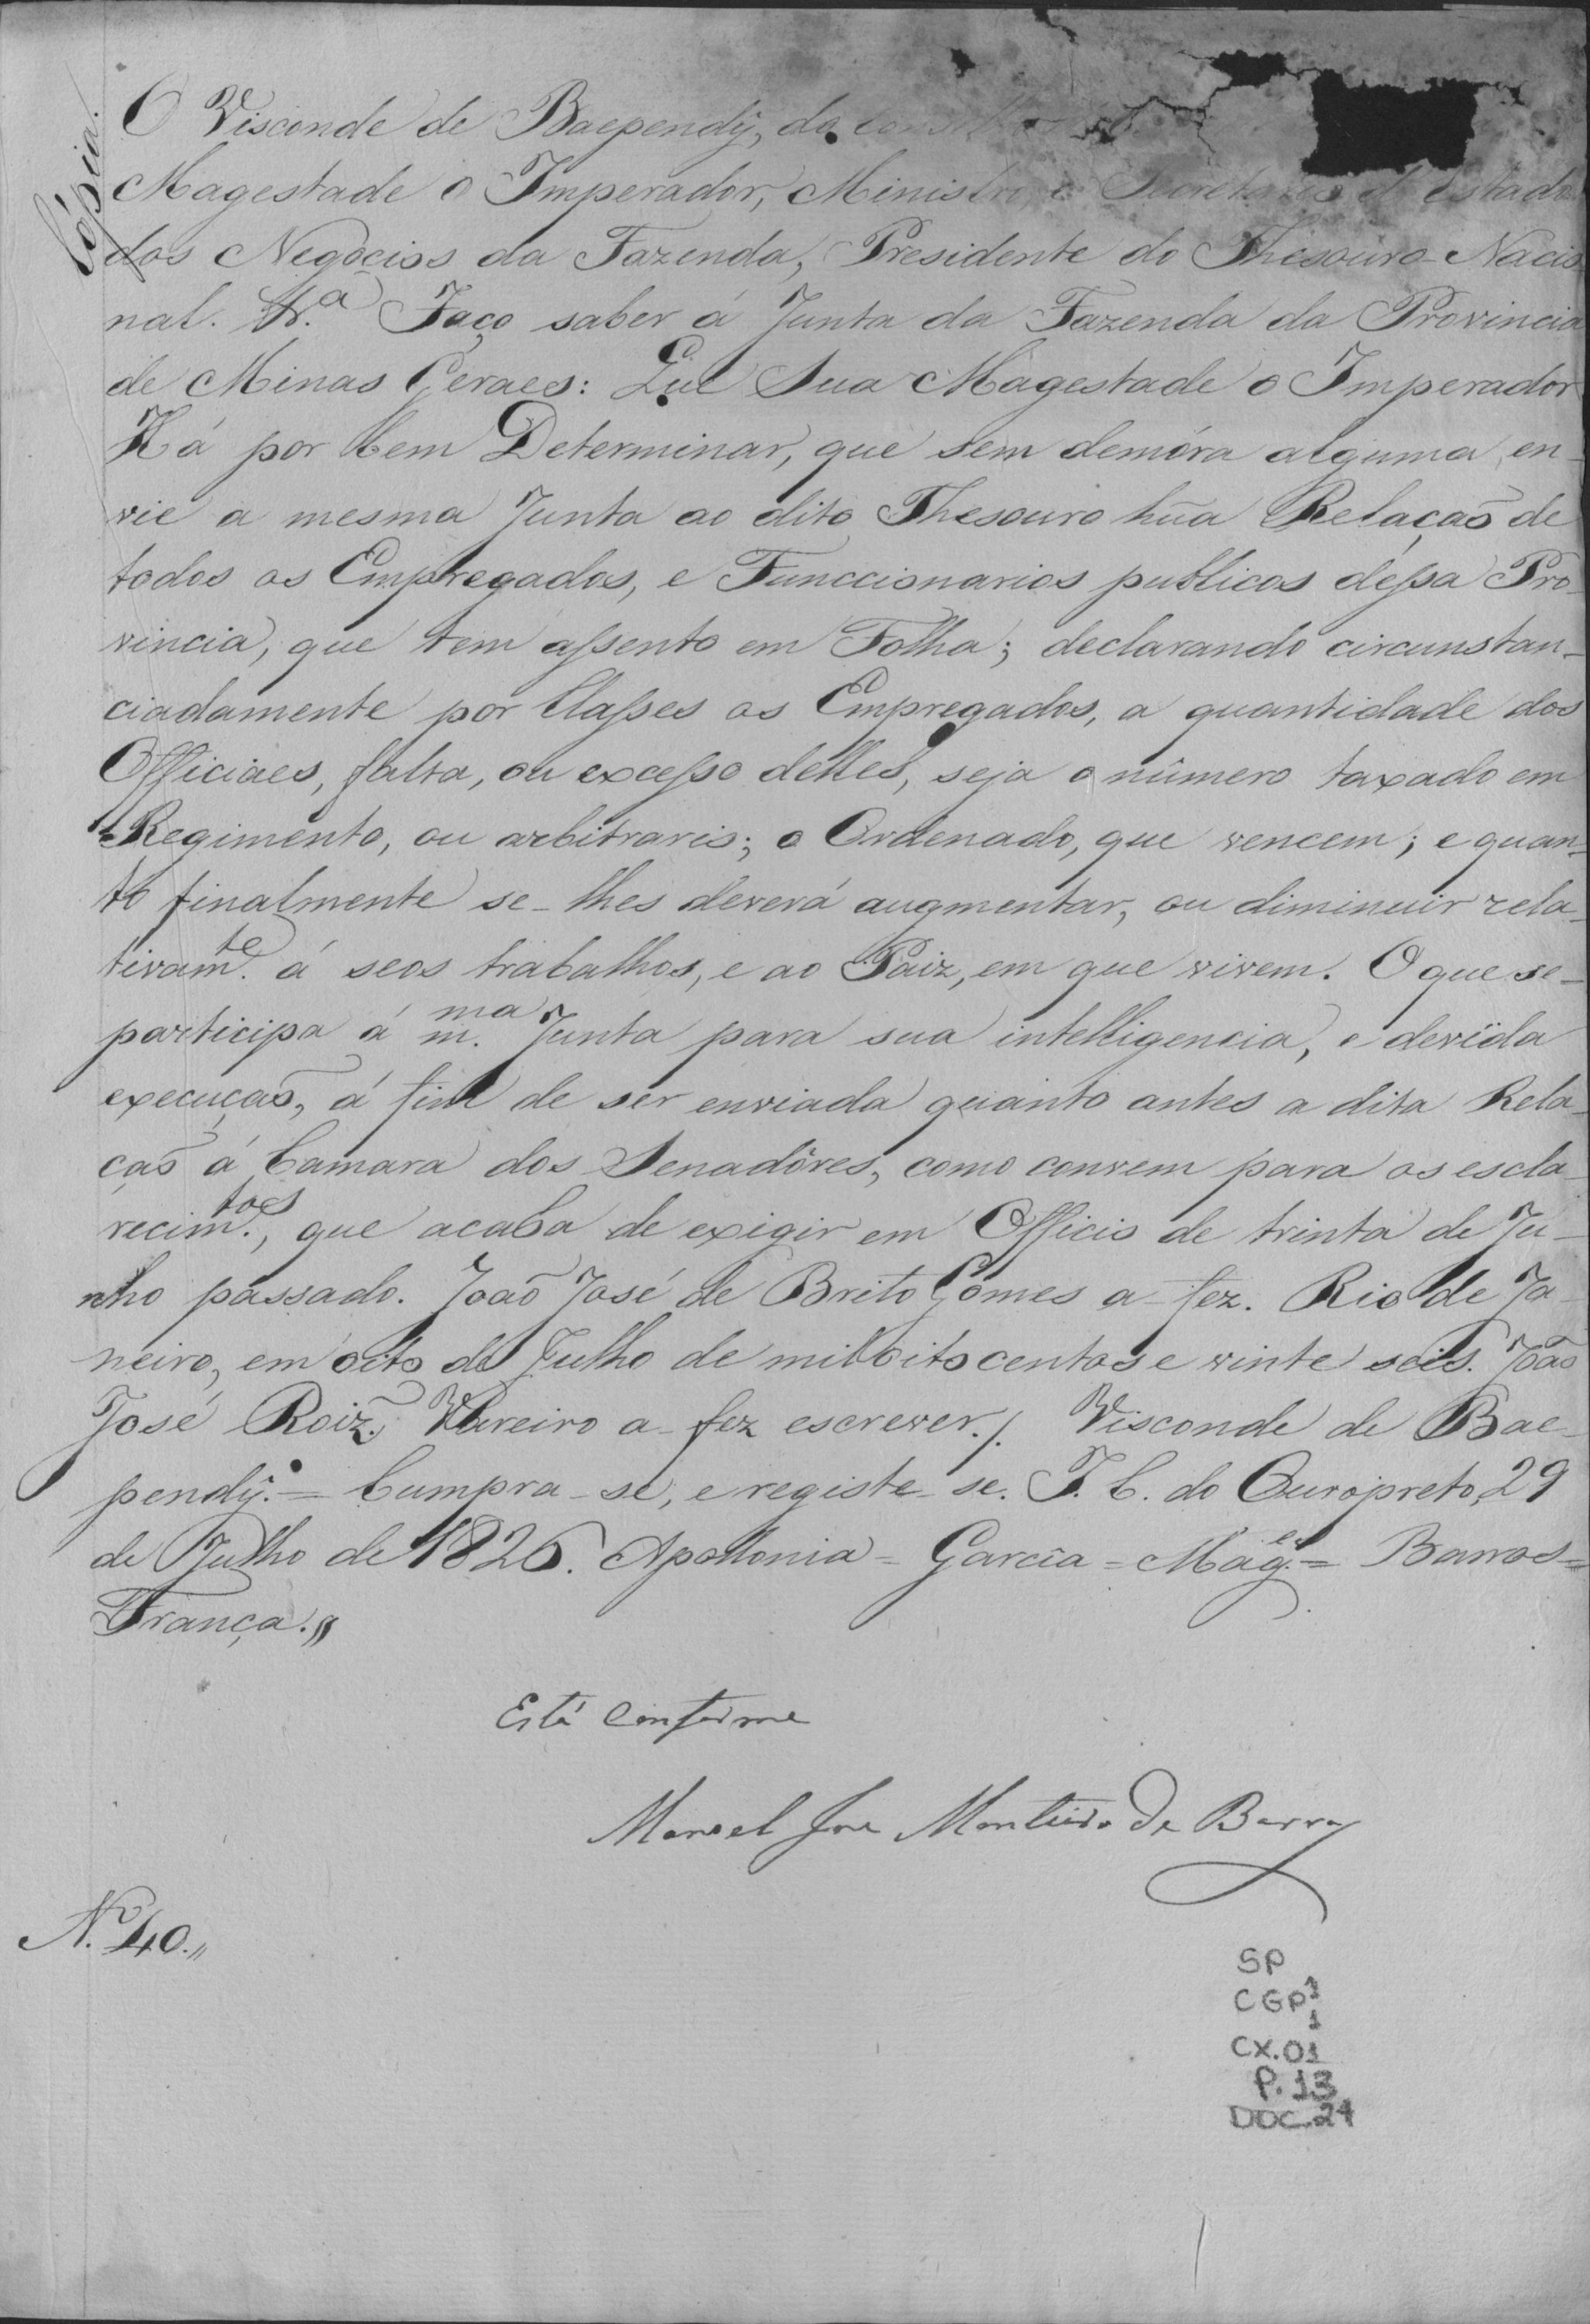 Cópia.
O Visconde de Baependÿ, do
Magestade o Imperador, Ministro e Secretario d' Estado
dos Negocios da Fazenda, Presidente do Thesouro Nacio
nal. &.ª Faço saber á Junta da Fazenda da Provincia
de Minas Geraes: Que Sua Magestade o Imperador
Há por bem Determinar, que sem demóra alguma en-
vie a mesma Junta ao dito Thesouro hũa Relaçaõ de
todos os Empregados, e Funccionarios publicos déssa Pro-
vincia, que tem assento em Folha; declarando circunstan-
ciadamente por Classes os Empregados, a quantidade dos
Officiaes, falta, ou excesso delles, seja o número taxado em
Regimento, ou arbitrario; o Ordenado, que vencem; e quan-
to finalmente se-lhes deverá augmentar, ou diminuir rela-
tivam.te á seos trabalhos, e ao Paiz, em que vivem. O que se-
participa á m.ma Junta para sua intelligencia, e devida
execuçaõ, á fim de ser enviada quanto antes a dita Rela-
çaõ á Camara dos Senadôres, como convem para os escla-
recim.tos, que acaba de exigir em Officio de trinta de Ju-
nho passado. Joaõ José de Brito Gomes a-fez. Rio de Ja-
neiro, em oito de Julho de mil oitocentos e vinte seis. Joaõ
José Roiz. Vareiro a-fez escrever./. Visconde de Bae-
pendÿ. = Cumpra-se, e registe-se. J. C. do Ouropreto 29
de Julho de 1826. Apollonia = Garcia = Mag.es = Barros =
França.,,
Está conforme
Manoel Jose Monteiro de Barros
N.º 40.,,
SP
CGP 1
1
CX.01
P.13
DOC.24